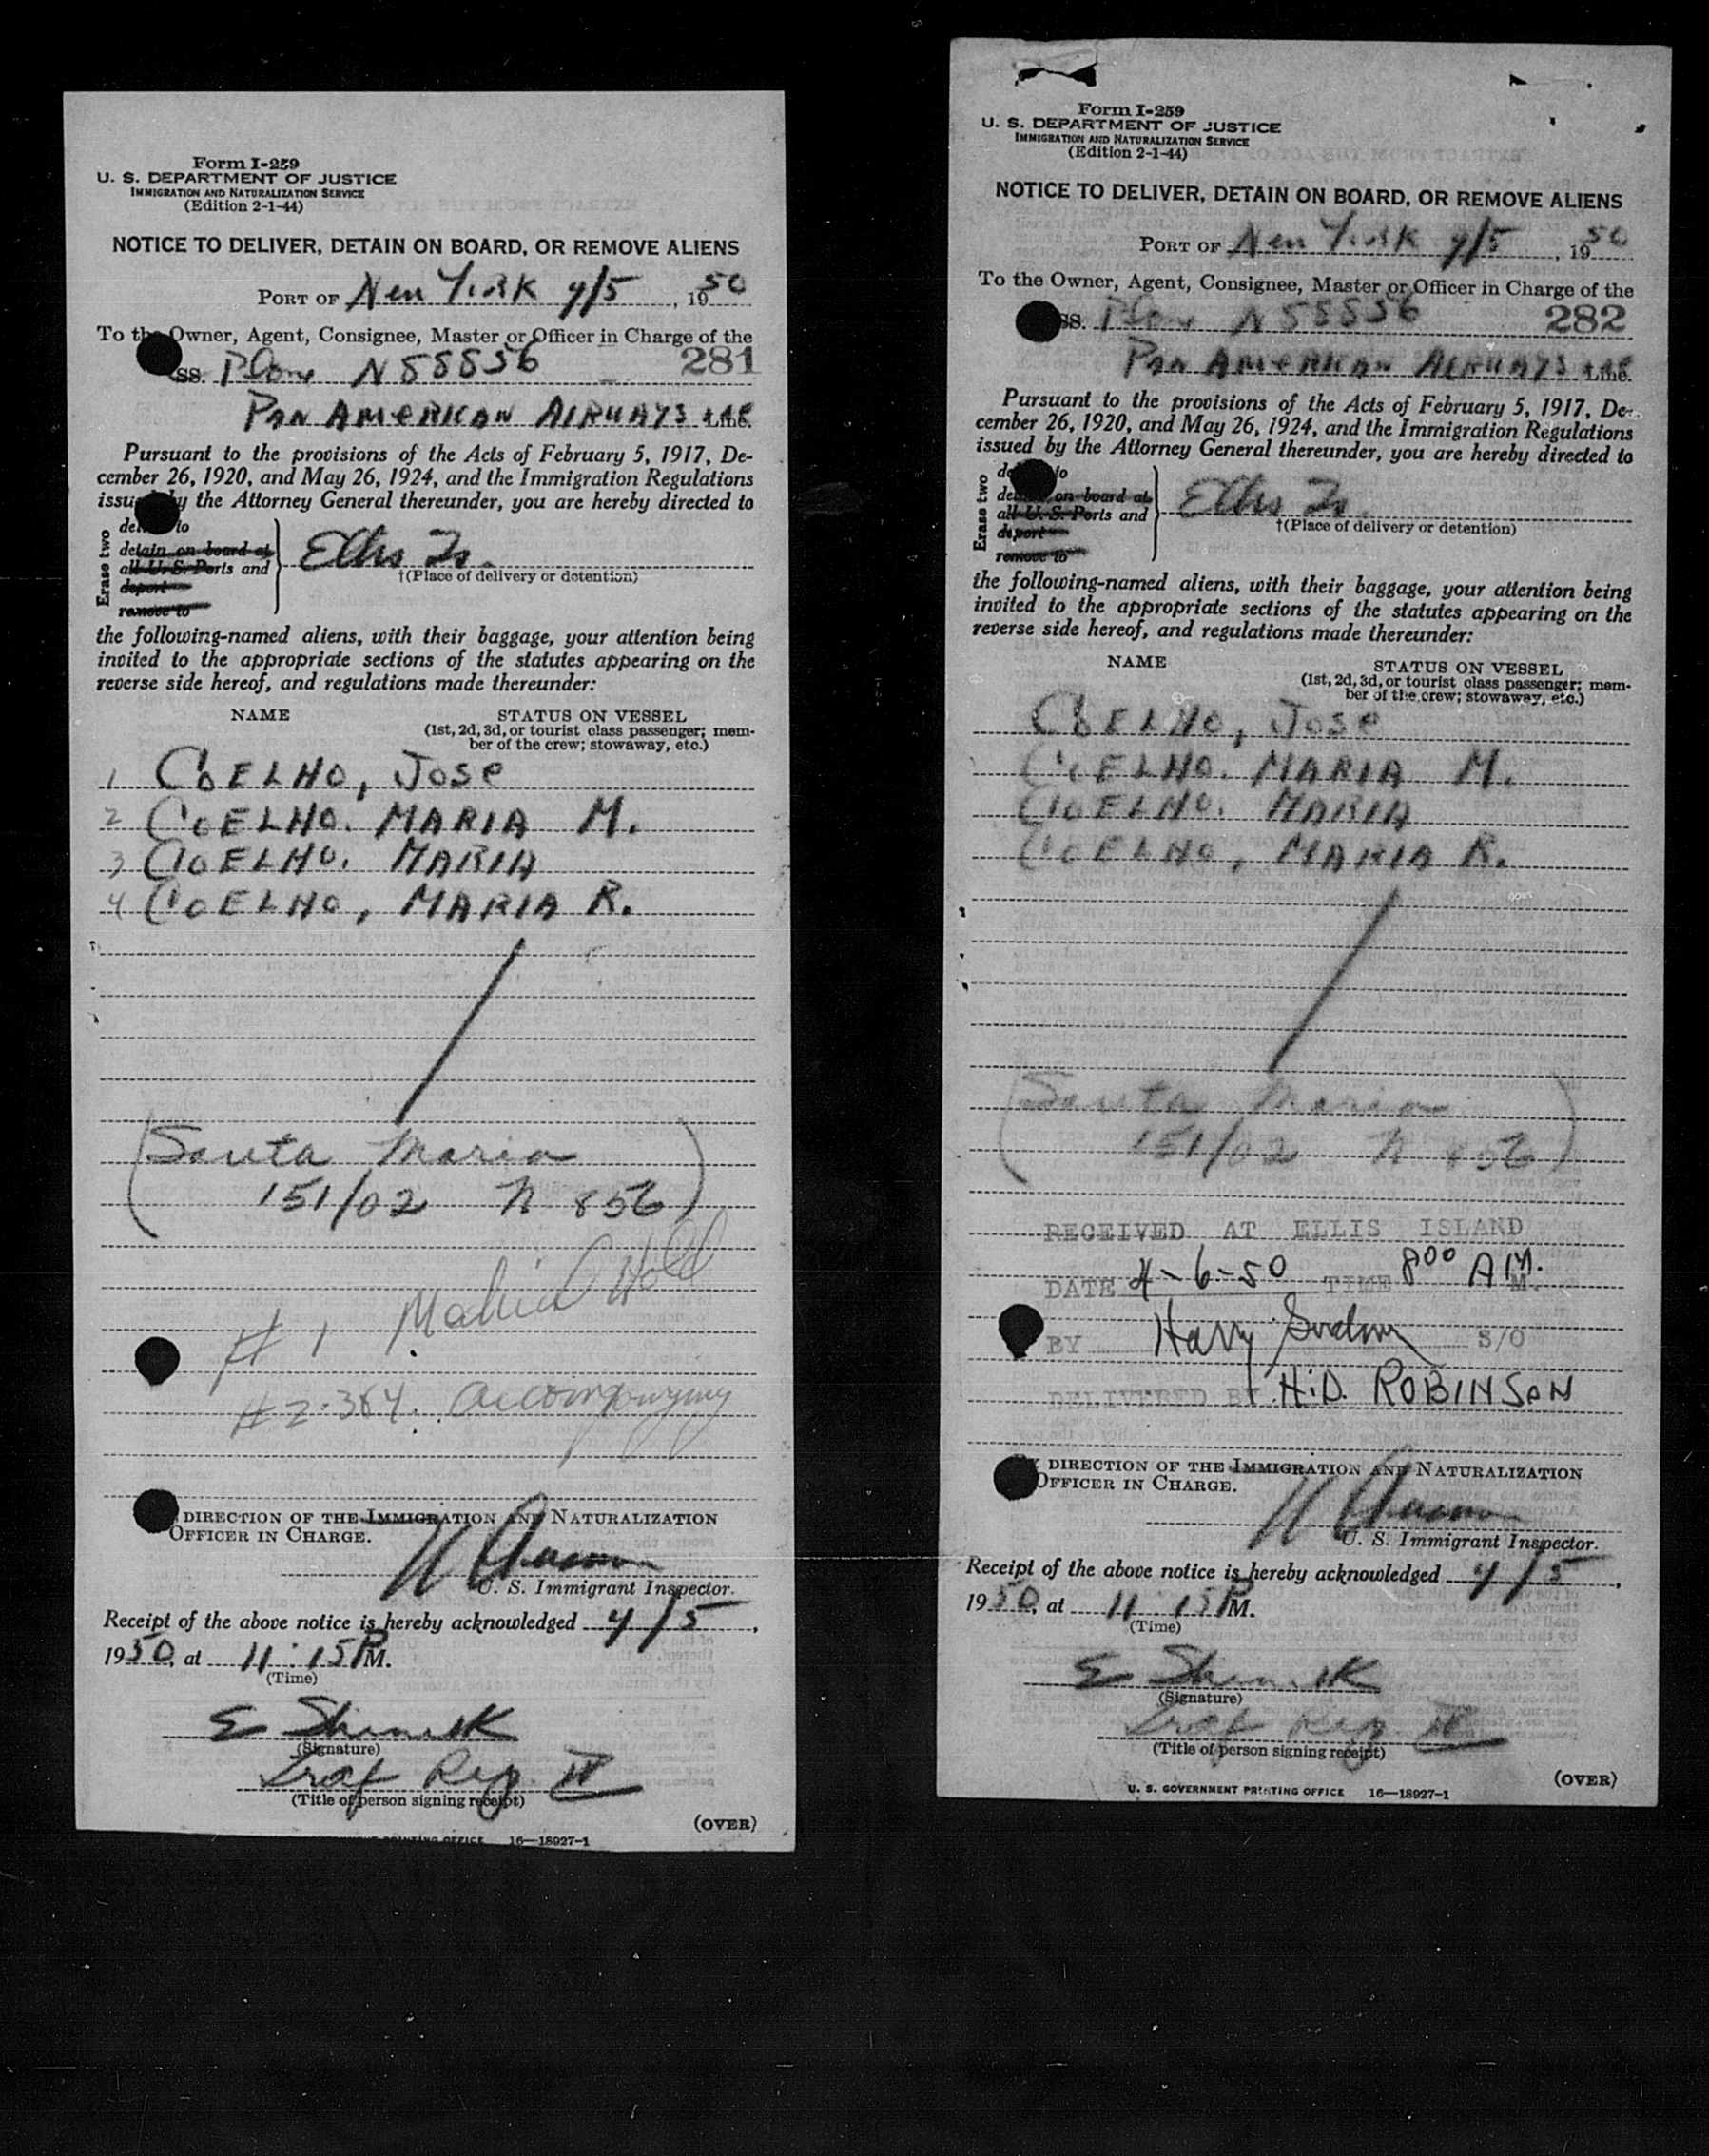 Form I-259
U. S. DEPARTMENT OF JUSTICE
IMMIGRATION AND NATURALIZATION SERVICE
(Edition 2-1-44)
NOTICE TO DELIVER, DETAIN ON BOARD, OR REMOVE ALIENS
PORT OF New York 4/5, 1950
To the Owner, Agent, Consignee, Master or Officer in Charge of the
SS. Plane N88856 281
PAN AMERICAN AIRWAYS Line.
Pursuant to the provisions of the Acts of February 5, 1917, De-
cember 26, 1920, and May 26, 1924, and the Immigration Regulations
issued by the Attorney General thereunder, you are hereby directed to
Erase two
to
detain on board at
all U. S. Ports and
deport
remove to
Ellis Is.
†(Place of delivery or detention)
the following-named aliens, with their baggage, your attention being
invited to the appropriate sections of the statutes appearing on the
reverse side hereof, and regulations made thereunder:
NAME STATUS ON VESSEL
(1st, 2d, 3d, or tourist class passenger; mem-
ber of the crew; stowaway, etc.)
1 COELHO, Jose
2 COELHO. MARIA M.
3 COELHO. MARIA
4 COELHO, MARIA R.
(Santa Maria
151/02 N 856)
# 1 Hold
# 2-3&4. accompanying
DIRECTION OF THE IMMIGRATION AND NATURALIZATION
OFFICER IN CHARGE.
U. S. Immigrant Inspector.
Receipt of the above notice is hereby acknowledged 4/5,
1950, at 11:15 PM.
(Time)
E
(Signature)
Traf Rep. IV
(Title of person signing receipt)
(OVER)
PRINTING OFFICE 16—18927-1
Form I-259
U. S. DEPARTMENT OF JUSTICE
IMMIGRATION AND NATURALIZATION SERVICE
(Edition 2-1-44)
NOTICE TO DELIVER, DETAIN ON BOARD, OR REMOVE ALIENS
PORT OF New York 4/5, 1950
To the Owner, Agent, Consignee, Master or Officer in Charge of the
SS. Plane N88856 282
PAN AMERICAN AIRWAYS Line.
Pursuant to the provisions of the Acts of February 5, 1917, De-
cember 26, 1920, and May 26, 1924, and the Immigration Regulations
issued by the Attorney General thereunder, you are hereby directed to
Erase two
to
on board at
all U. S. Ports and
deport
remove to
Ellis Is.
†(Place of delivery or detention)
the following-named aliens, with their baggage, your attention being
invited to the appropriate sections of the statutes appearing on the
reverse side hereof, and regulations made thereunder:
NAME STATUS ON VESSEL
(1st, 2d, 3d, or tourist class passenger; mem-
ber of the crew; stowaway, etc.)
COELHO, Jose
COELHO. MARIA M.
COELHO. MARIA
COELHO, MARIA R.
(Santa Maria
151/02 N 856)
RECEIVED AT ELLIS ISLAND
DATE 4-6-50 TIME 8:00 AM.
BY Harry S/O
DELIVERED BY H.D. ROBINSON
DIRECTION OF THE IMMIGRATION AND NATURALIZATION
OFFICER IN CHARGE.
U. S. Immigrant Inspector.
Receipt of the above notice is hereby acknowledged 4/5,
1950, at 11:15 PM.
(Time)
E
(Signature)
Traf Rep. IV
(Title of person signing receipt)
(OVER)
U. S. GOVERNMENT PRINTING OFFICE 16—18927-1